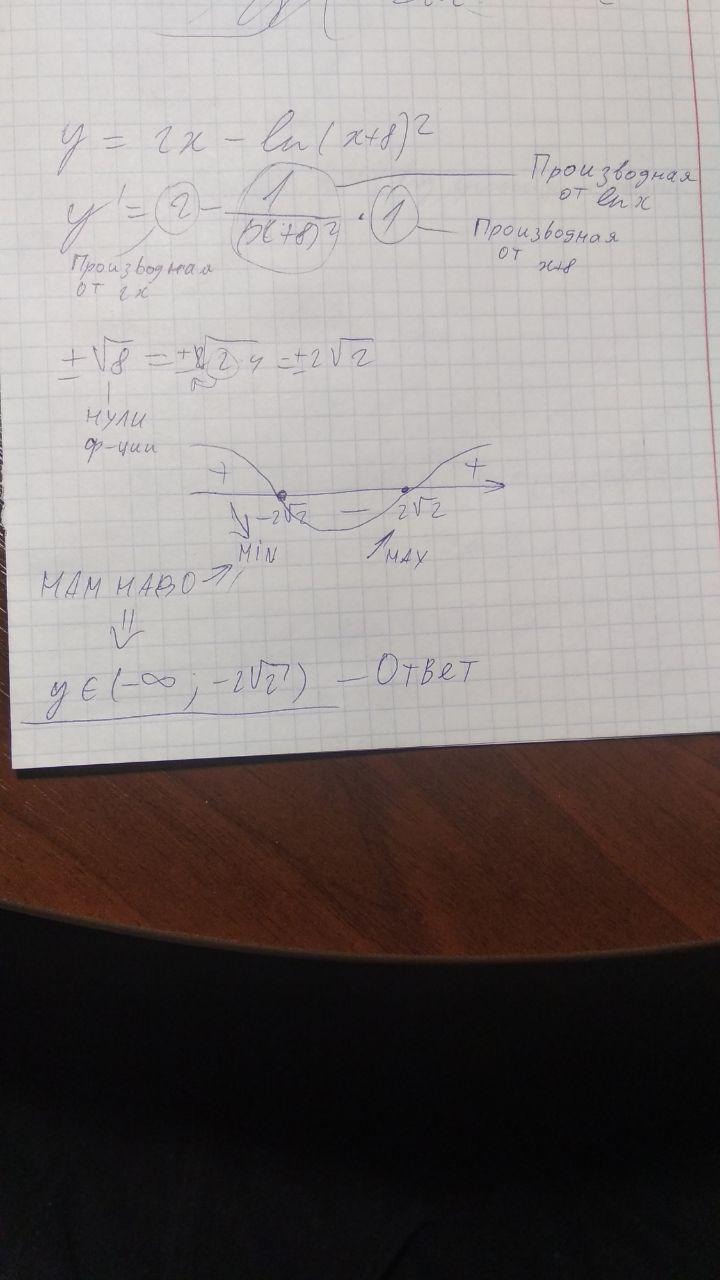 y = 2x - ln(x+8)²
y' = 2 - 1/(x+8)² · 1
Производная
от ln x
Производная
от
x+8
Производная
от 2x
±√8 = ±√2·4 = ±2√2
нули
ф-ции
+ - +
-2√2 2√2
MIN MAX
НАМ НАДО
y ∈ (-∞; -2√2) — Ответ